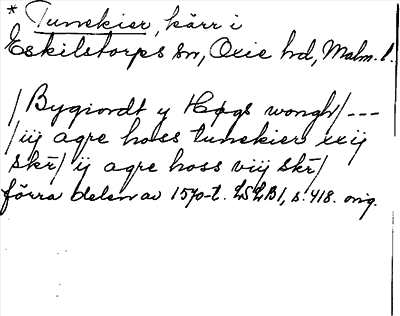 * Tunekier, kärr i
Eskilstorps sn, Oxie hd, Malm. l.
/Bygiordt y Høgs wongh/ ---
/iij agre hoss tunekier xxij
skr̄/ ij agre hoss viij skr̄/
förra delen av 1570-t. LSLB1, s. 418. orig.